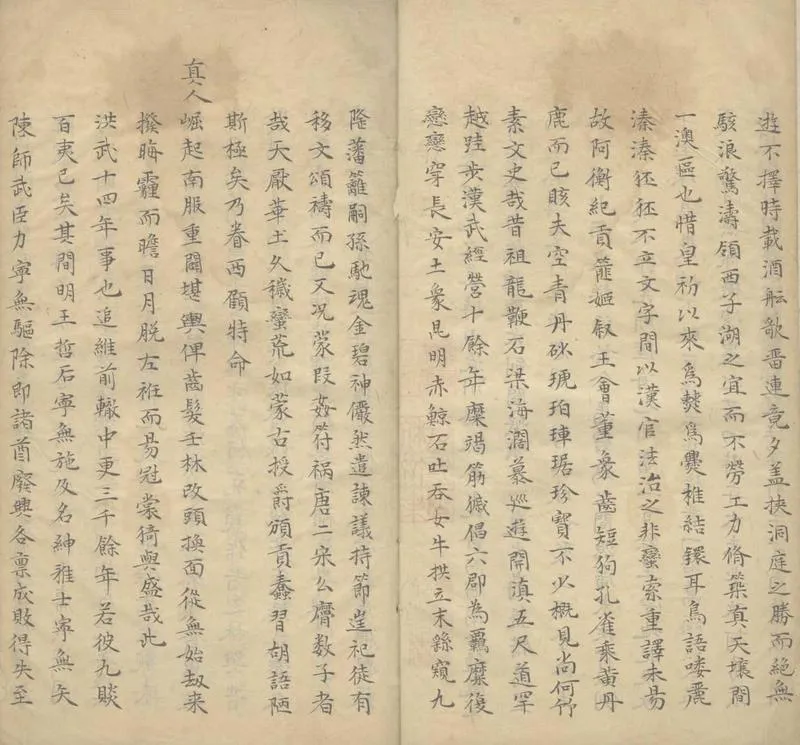 遊不擇時載酒舩歌晋連竟夕盖挾洞庭之勝而絕無
駭浪驚濤領西子湖之宜而不勞工力脩築真天壤間
一澳區也惜皇初以來為僰為爨椎結鐶耳鳥語喽麗
溱溱狉狉不立文字間以漢官法治之非蠻索重譯未易
故阿衡紀貢蓰姬叙王會董象齒短狗孔雀乘黃丹
鹿而已賅夫空青丹砂琥珀琿琚珍寶不少概見尚何竹
素文史哉昔祖龍鞭石梁海濶慕巡遊開滇五尺道罕
越跬步漢武經營十餘年糜竭筋緘倡六郡為羈縻後
戀戀穿長安土象昆明赤鯨石吐吞女牛拱立未繇窺九
隆藩籬嗣孫馳魂金碧神儼然遣諫議持節崖祀徒有
移文頌禱而已又况蒙叚姦符禍唐二宋么麿数子者
哉天厭華土久穢蠻荒如蒙古授爵頒貢蠢習胡語陋
斯極矣乃眷西顧特命
真人崛起南服重闢堪輿俾齒髮壬林改頭換面從無始刼来
撥晦霾而瞻日月脱左袵而易冠裳猗輿盛哉此
洪武十四年事也追維前轍中更三千餘年若彼九賧
百夷已矣其間明王哲后寧無施及名紳雅士寧無矢
陳師武臣力寧無驅除即諸酋廢興各禀成敗得失至